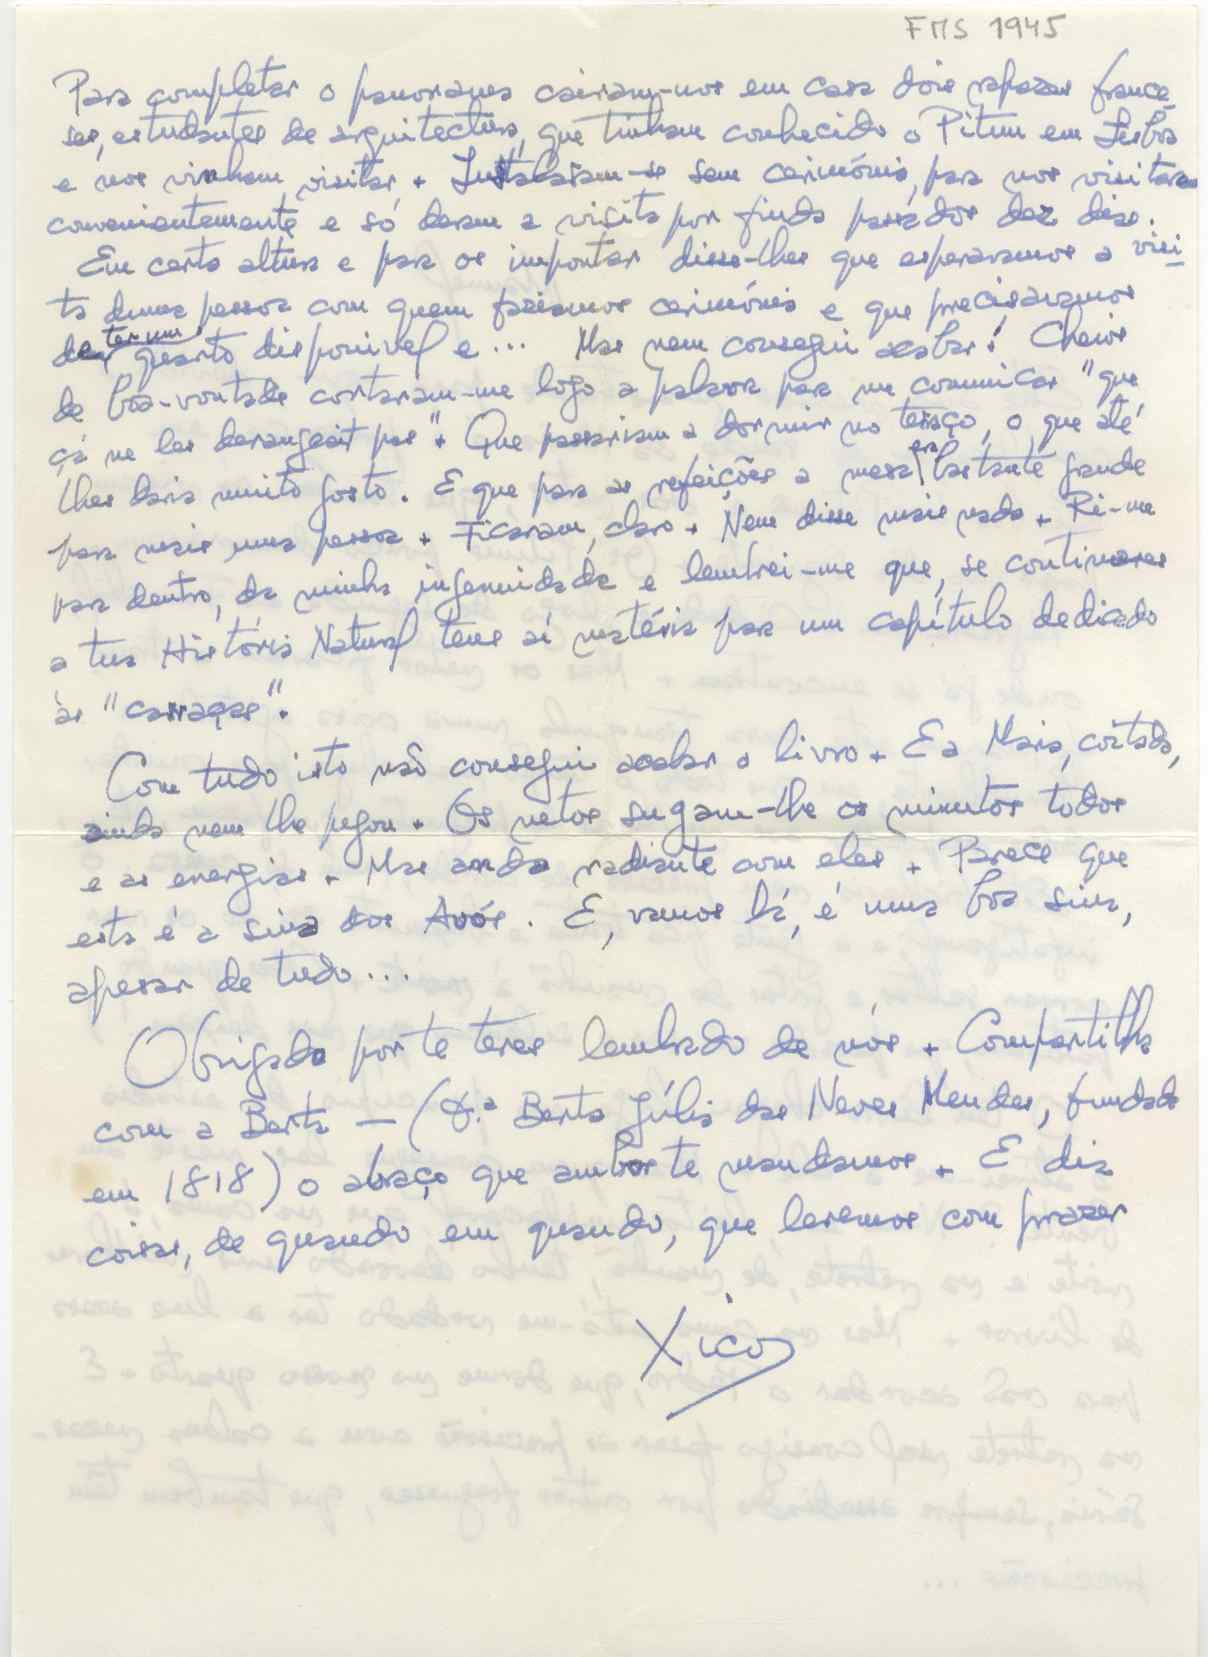 FMS 1945
Para completar o panorama cairam-nos em casa dois rapazes france_
ses, estudantes de arquitectura, que tinham conhecido o Pitum em Lisboa
e nos vinham visitar. Instalaram-se sem cerimónia, para nos visitarem
convenientemente e só deram a visita por finda passados dez dias.
Em certa altura e para os importar disse-lhes que esperavamos a visi_
ta duma pessoa com quem faziamos cerimónia e que precisavamos
de ter um quarto disponivel e... Mas nem consegui acabar! Cheios
de boa-vontade cortaram-me logo a palavra para me comunicar "que
çá ne les derangeait pas". Que passariam a dormir no terraço, o que até
lhes daria muito gosto. E que para as refeições a mesa era bastante grande
para mais uma pessoa. Ficaram, claro. Nem disse mais nada. Ri-me
para dentro, da minha ingenuidade e lembrei-me que, se continuares
a tua História Natural tens aí matéria para um capítulo dedicado
às "carraças".
Com tudo isto não consegui acabar o livro. E a Maria, coitada,
ainda nem lhe pegou. Os netos sugam-lhe os minutos todos
e as energias. Mas anda radiante com eles. Parece que
esta é a sina dos Avós. E, vamos lá, é uma boa sina,
apesar de tudo...
Obrigado por te teres lembrado de nós. Compartilha
com a Berta — (D.ª Berta Júlia das Neves Mendes, fundada
em 1818) o abraço que ambos te mandamos. E diz
coisas, de quando em quando, que leremos com prazer
Xico